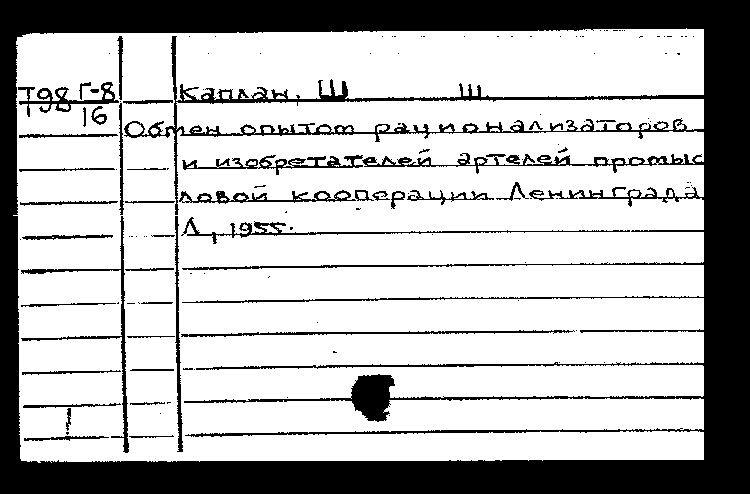 Т98 Г-8 Каплан, Ш Ш.
16
Обмен опытом рационализаторов
и изобретателей артелей промыс
ловой кооперации Ленинграда
Л, 1955.